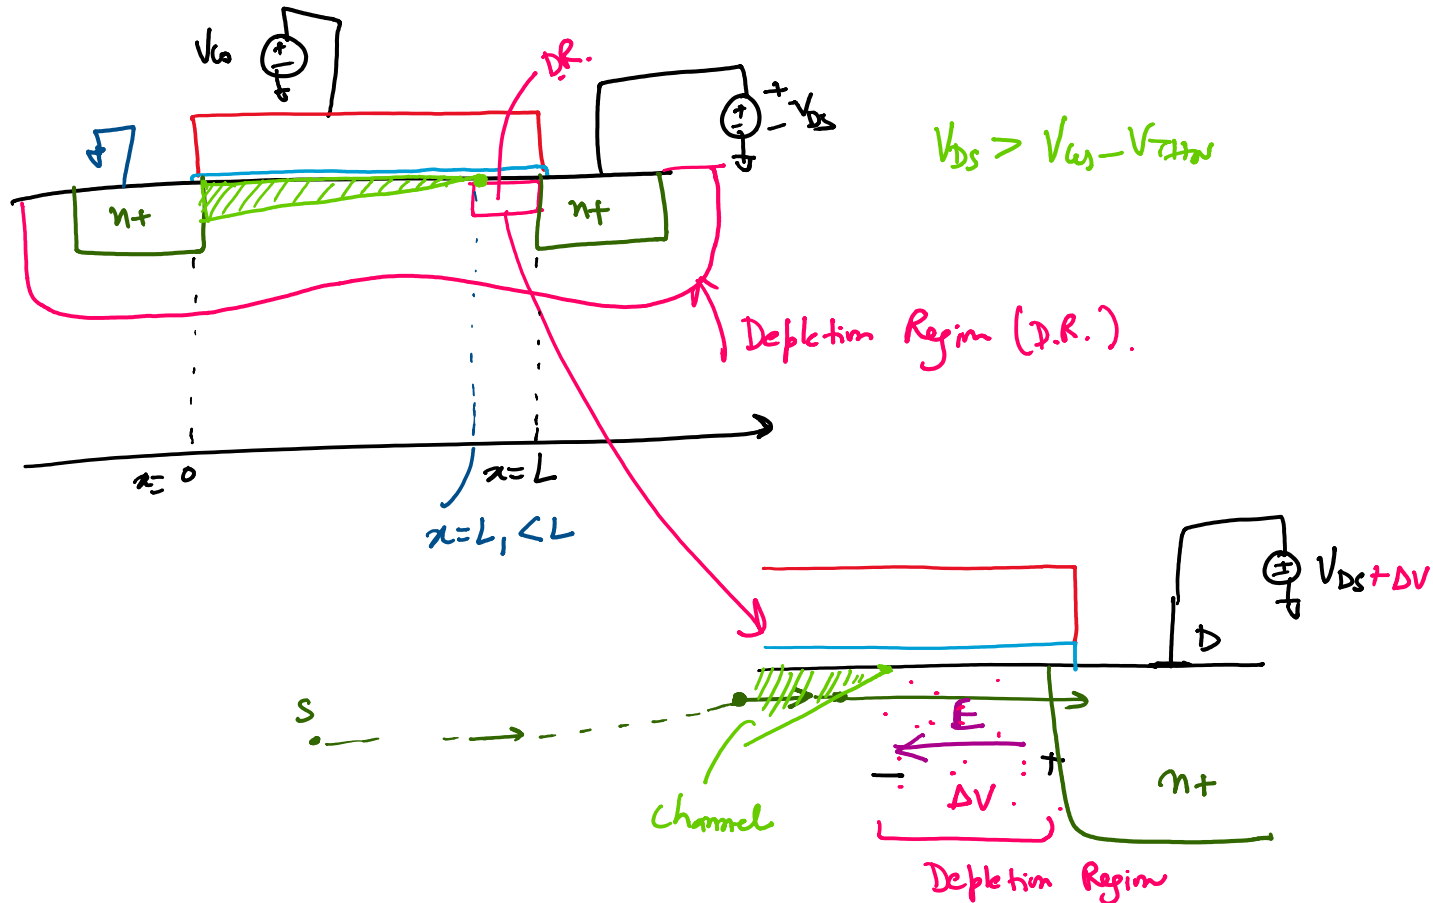 VGS
D.R.
+
-
VDS
VDS > VGS - VTHN
n+
n+
Depletion Region (D.R.).
x=0
x=L
x=L1 < L
VDS+ΔV
D
S
E
-
+
ΔV
n+
Channel
Depletion Region